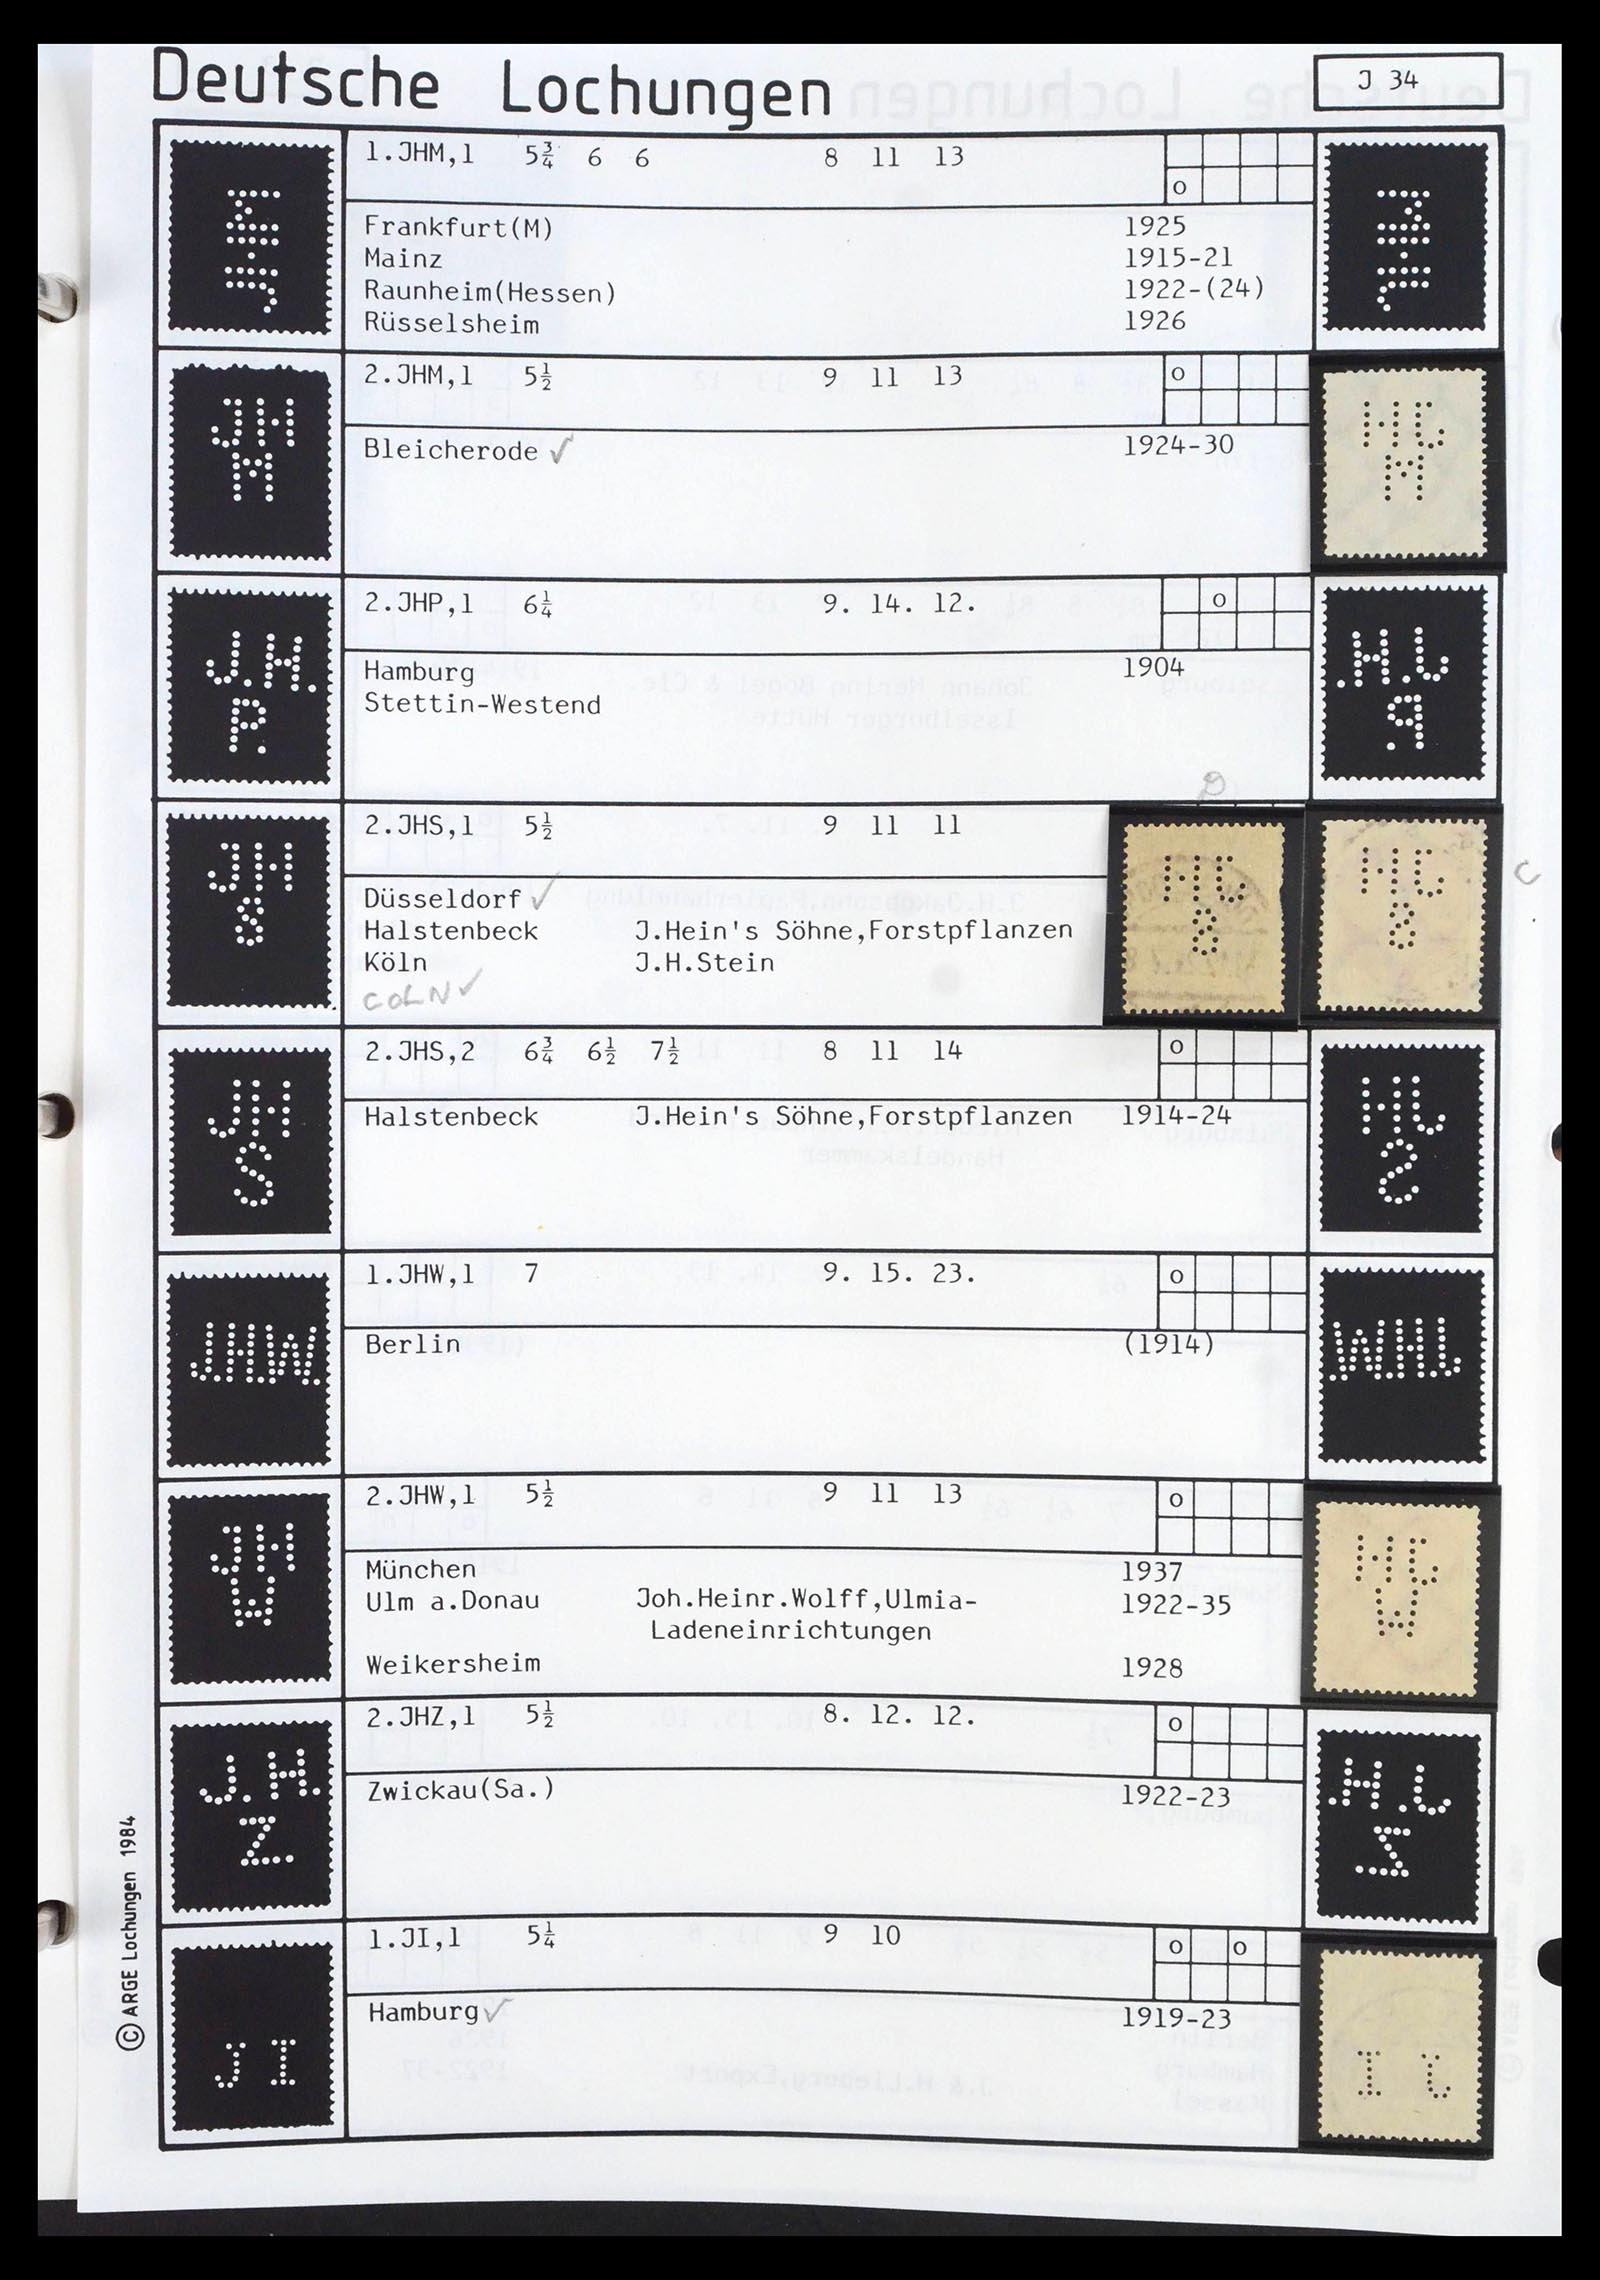 Deutsche Lochungen
J 34
1.JHM,1 5¾ 6 6 8 11 13
o
Frankfurt(M) 1925
Mainz 1915-21
Raunheim(Hessen) 1922-(24)
Rüsselsheim 1926
JHM
2.JHM,1 5½ 9 11 13
o
Bleicherode ✓ 1924-30
JH
M
2.JHP,1 6¼ 9. 14. 12.
o
Hamburg 1904
Stettin-Westend
J.H.
P.
2.JHS,1 5½ 9 11 11
Düsseldorf ✓
Halstenbeck J.Hein's Söhne,Forstpflanzen
Köln J.H.Stein
COLN ✓
D
C
JH
8
2.JHS,2 6¾ 6½ 7½ 8 11 14
o
Halstenbeck J.Hein's Söhne,Forstpflanzen 1914-24
JH
S
1.JHW,1 7 9. 15. 23.
o
Berlin (1914)
JHW
2.JHW,1 5½ 9 11 13
o
München 1937
Ulm a.Donau Joh.Heinr.Wolff,Ulmia- 1922-35
Ladeneinrichtungen
Weikersheim 1928
JH
W
2.JHZ,1 5½ 8. 12. 12.
o
Zwickau(Sa.) 1922-23
J.H.
Z.
1.JI,1 5¼ 9 10
o o
Hamburg ✓ 1919-23
J I
© ARGE Lochungen 1984